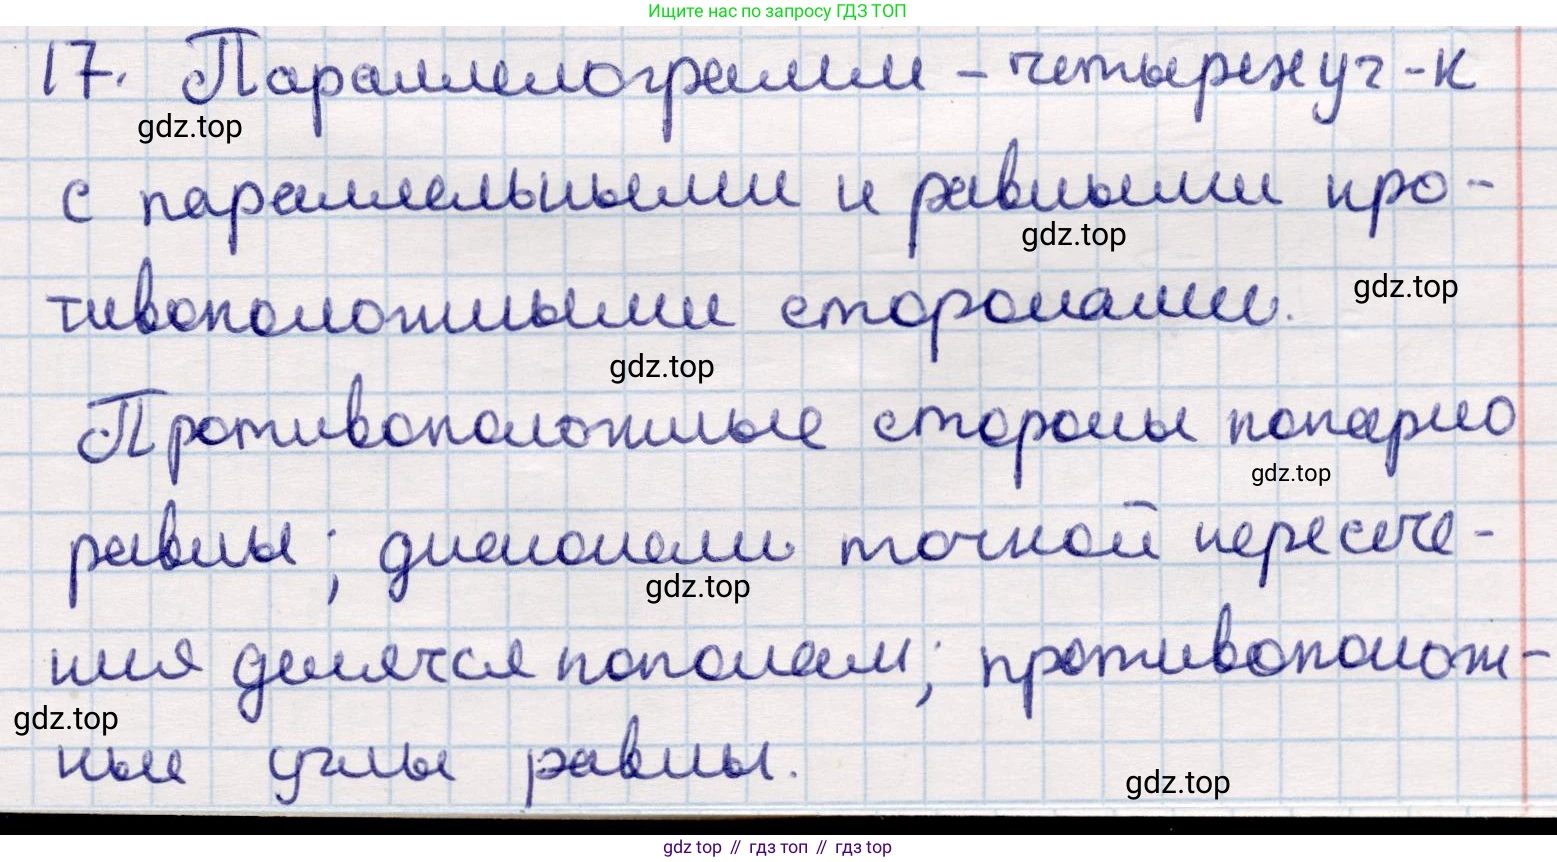 Ищите нас по запросу ГДЗ ТОП
17. Параллелограмм - четырехуг-к
gdz.top
с параллельными и равными про-
gdz.top
тивоположными сторонами.
gdz.top
gdz.top
Противоположные стороны попарно
gdz.top
равны; диагонали точкой пересече-
gdz.top
ния делятся пополам; противополож-
gdz.top
ные углы равны.
gdz.top
gdz top // гдз топ // гдз top